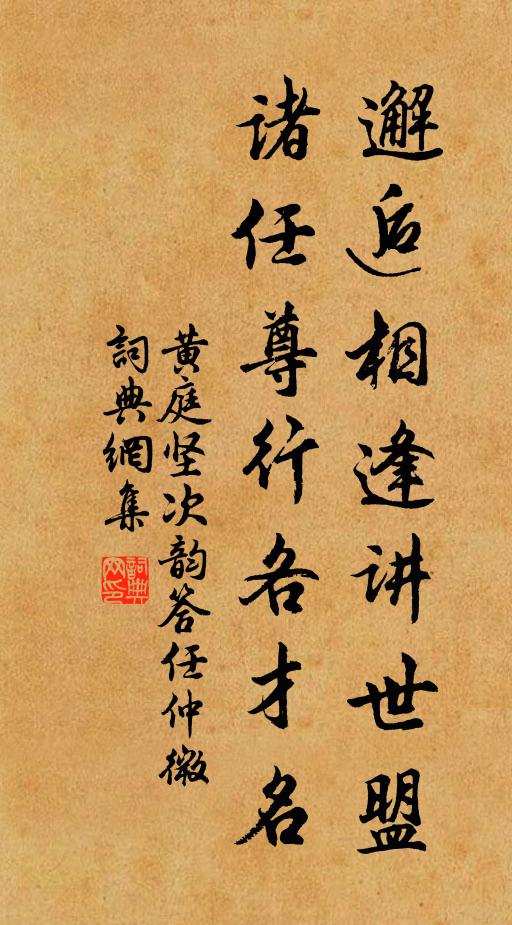 邂逅相逢讲世盟
诸任尊行各才名
黄庭坚次韵答任仲微
詞典網集
詞典网印